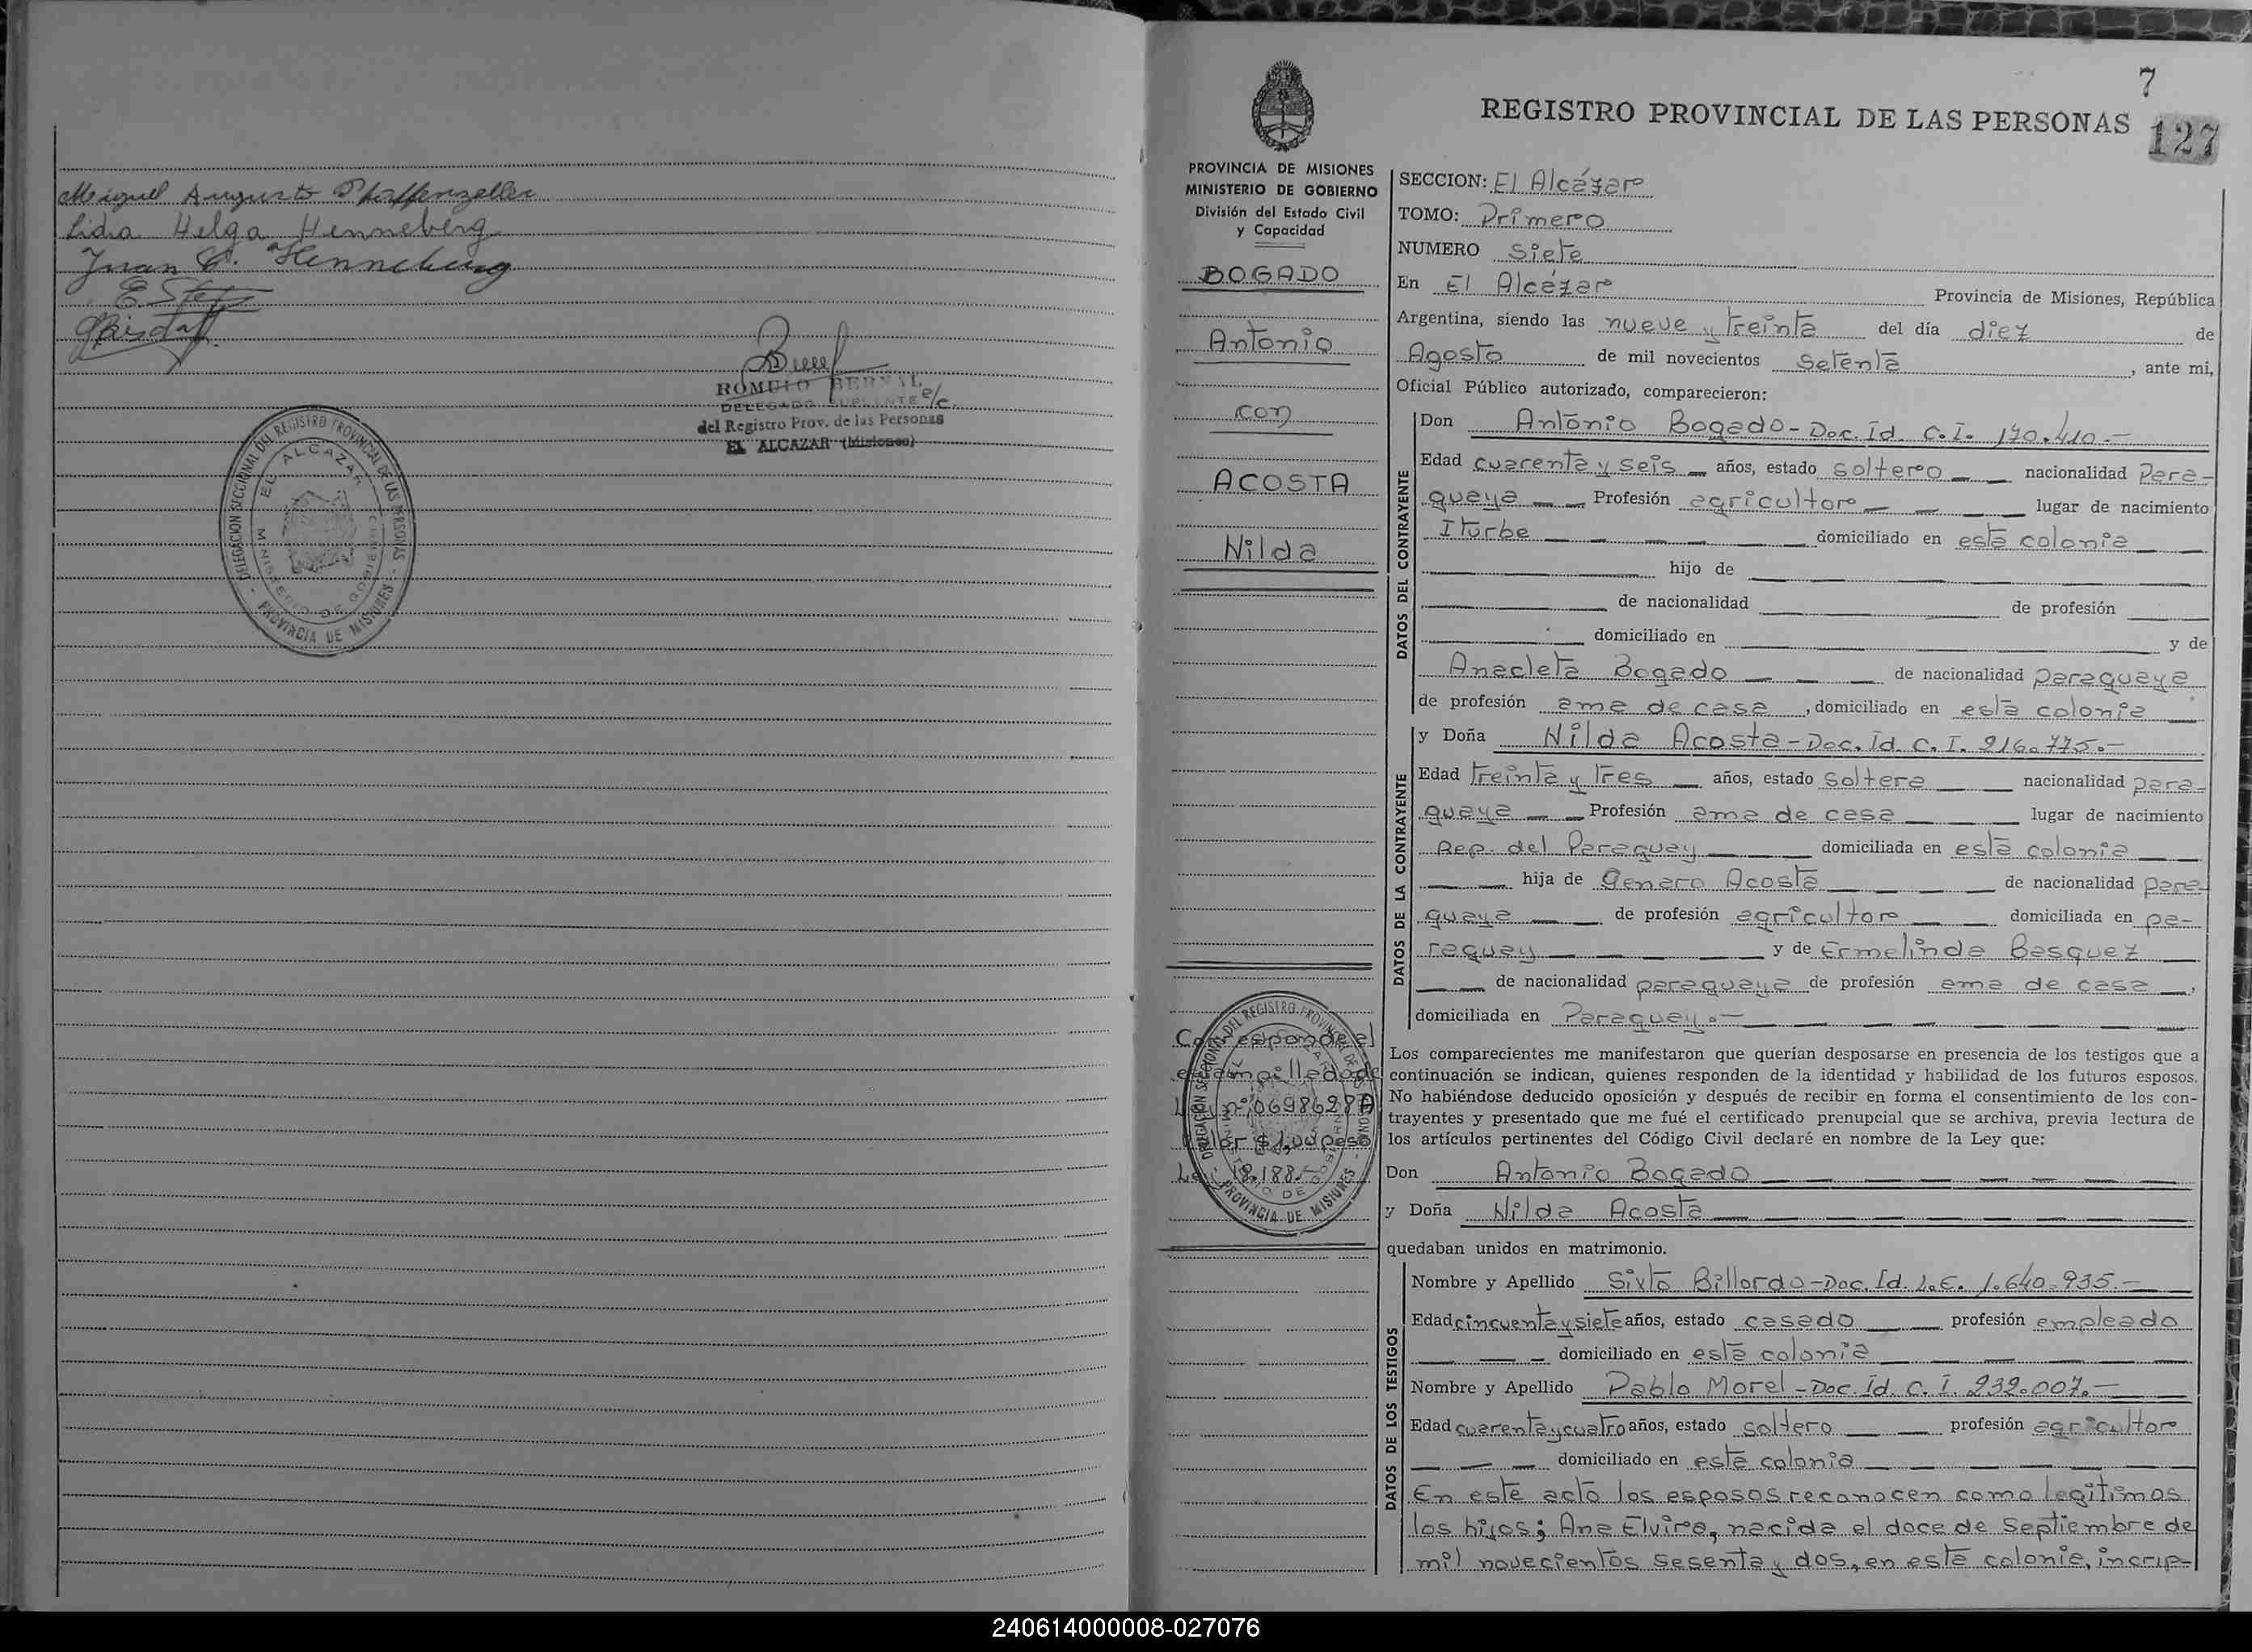 Miguel Augusto Phaffenzeller
Lidia Helga Henneberg
Juan C. Henneberg
ROMULO BERNAL
DELEGADO SUPLENTE e/c.
del Registro Prov. de las Personas
EL ALCAZAR (Misiones)
DELEGACION SECCIONAL DEL REGISTRO PROVINCIAL DE LAS PERSONAS - PROVINCIA DE MISIONES -
EL ALCAZAR
MINISTERIO DE GOBIERNO
7
REGISTRO PROVINCIAL DE LAS PERSONAS
127
PROVINCIA DE MISIONES
MINISTERIO DE GOBIERNO
División del Estado Civil
y Capacidad
BOGADO
Antonio
con
ACOSTA
Nilda
Corresponde al
estampillado de
Ley nº 0698628A
valor $ 1,00 peso
Ley 18.188.-
DELEGACION SECCIONAL DEL REGISTRO PROVINCIAL DE LAS PERSONAS - PROVINCIA DE MISIONES -
SECCION: El Alcázar
TOMO: Primero
NUMERO Siete
En El Alcázar Provincia de Misiones, República
Argentina, siendo las nueve y treinta del día diez de
Agosto de mil novecientos setenta, ante mi,
Oficial Público autorizado, comparecieron:
DATOS DEL CONTRAYENTE
Don Antonio Bogado - Doc. Id. C. I. 170.410.-
Edad cuarenta y seis años, estado soltero nacionalidad Para-
guaya Profesión agricultor lugar de nacimiento
Iturbe domiciliado en esta colonia
hijo de
de nacionalidad de profesión
domiciliado en y de
Anacleta Bogado de nacionalidad paraguaya
de profesión ama de casa, domiciliado en esta colonia
DATOS DE LA CONTRAYENTE
y Doña Nilda Acosta - Doc. Id. C. I. 216.775.-
Edad treinta y tres años, estado soltera nacionalidad para-
guaya Profesión ama de casa lugar de nacimiento
Rep. del Paraguay domiciliada en esta colonia
hija de Genaro Acosta de nacionalidad para-
guaya de profesión agricultor domiciliada en pa-
raguay y de Ermelinda Basquez
de nacionalidad paraguaya de profesión ama de casa,
domiciliada en Paraguay.-
Los comparecientes me manifestaron que querían desposarse en presencia de los testigos que a
continuación se indican, quienes responden de la identidad y habilidad de los futuros esposos.
No habiéndose deducido oposición y después de recibir en forma el consentimiento de los con-
trayentes y presentado que me fué el certificado prenupcial que se archiva, previa lectura de
los artículos pertinentes del Código Civil declaré en nombre de la Ley que:
Don Antonio Bogado
y Doña Nilda Acosta
quedaban unidos en matrimonio.
DATOS DE LOS TESTIGOS
Nombre y Apellido Sixto Billordo - Doc. Id. L. E. 1.640.935.-
Edad cincuenta y siete años, estado casado profesión empleado
domiciliado en esta colonia
Nombre y Apellido Pablo Morel - Doc. Id. C. I. 232.007.-
Edad cuarenta y cuatro años, estado soltero profesión agricultor
domiciliado en esta colonia
En este acto los esposos reconocen como legitimos
los hijos; Ana Elvira, nacida el doce de Septiembre de
mil novecientos sesenta y dos, en esta colonia, incrip-
240614000008-027076